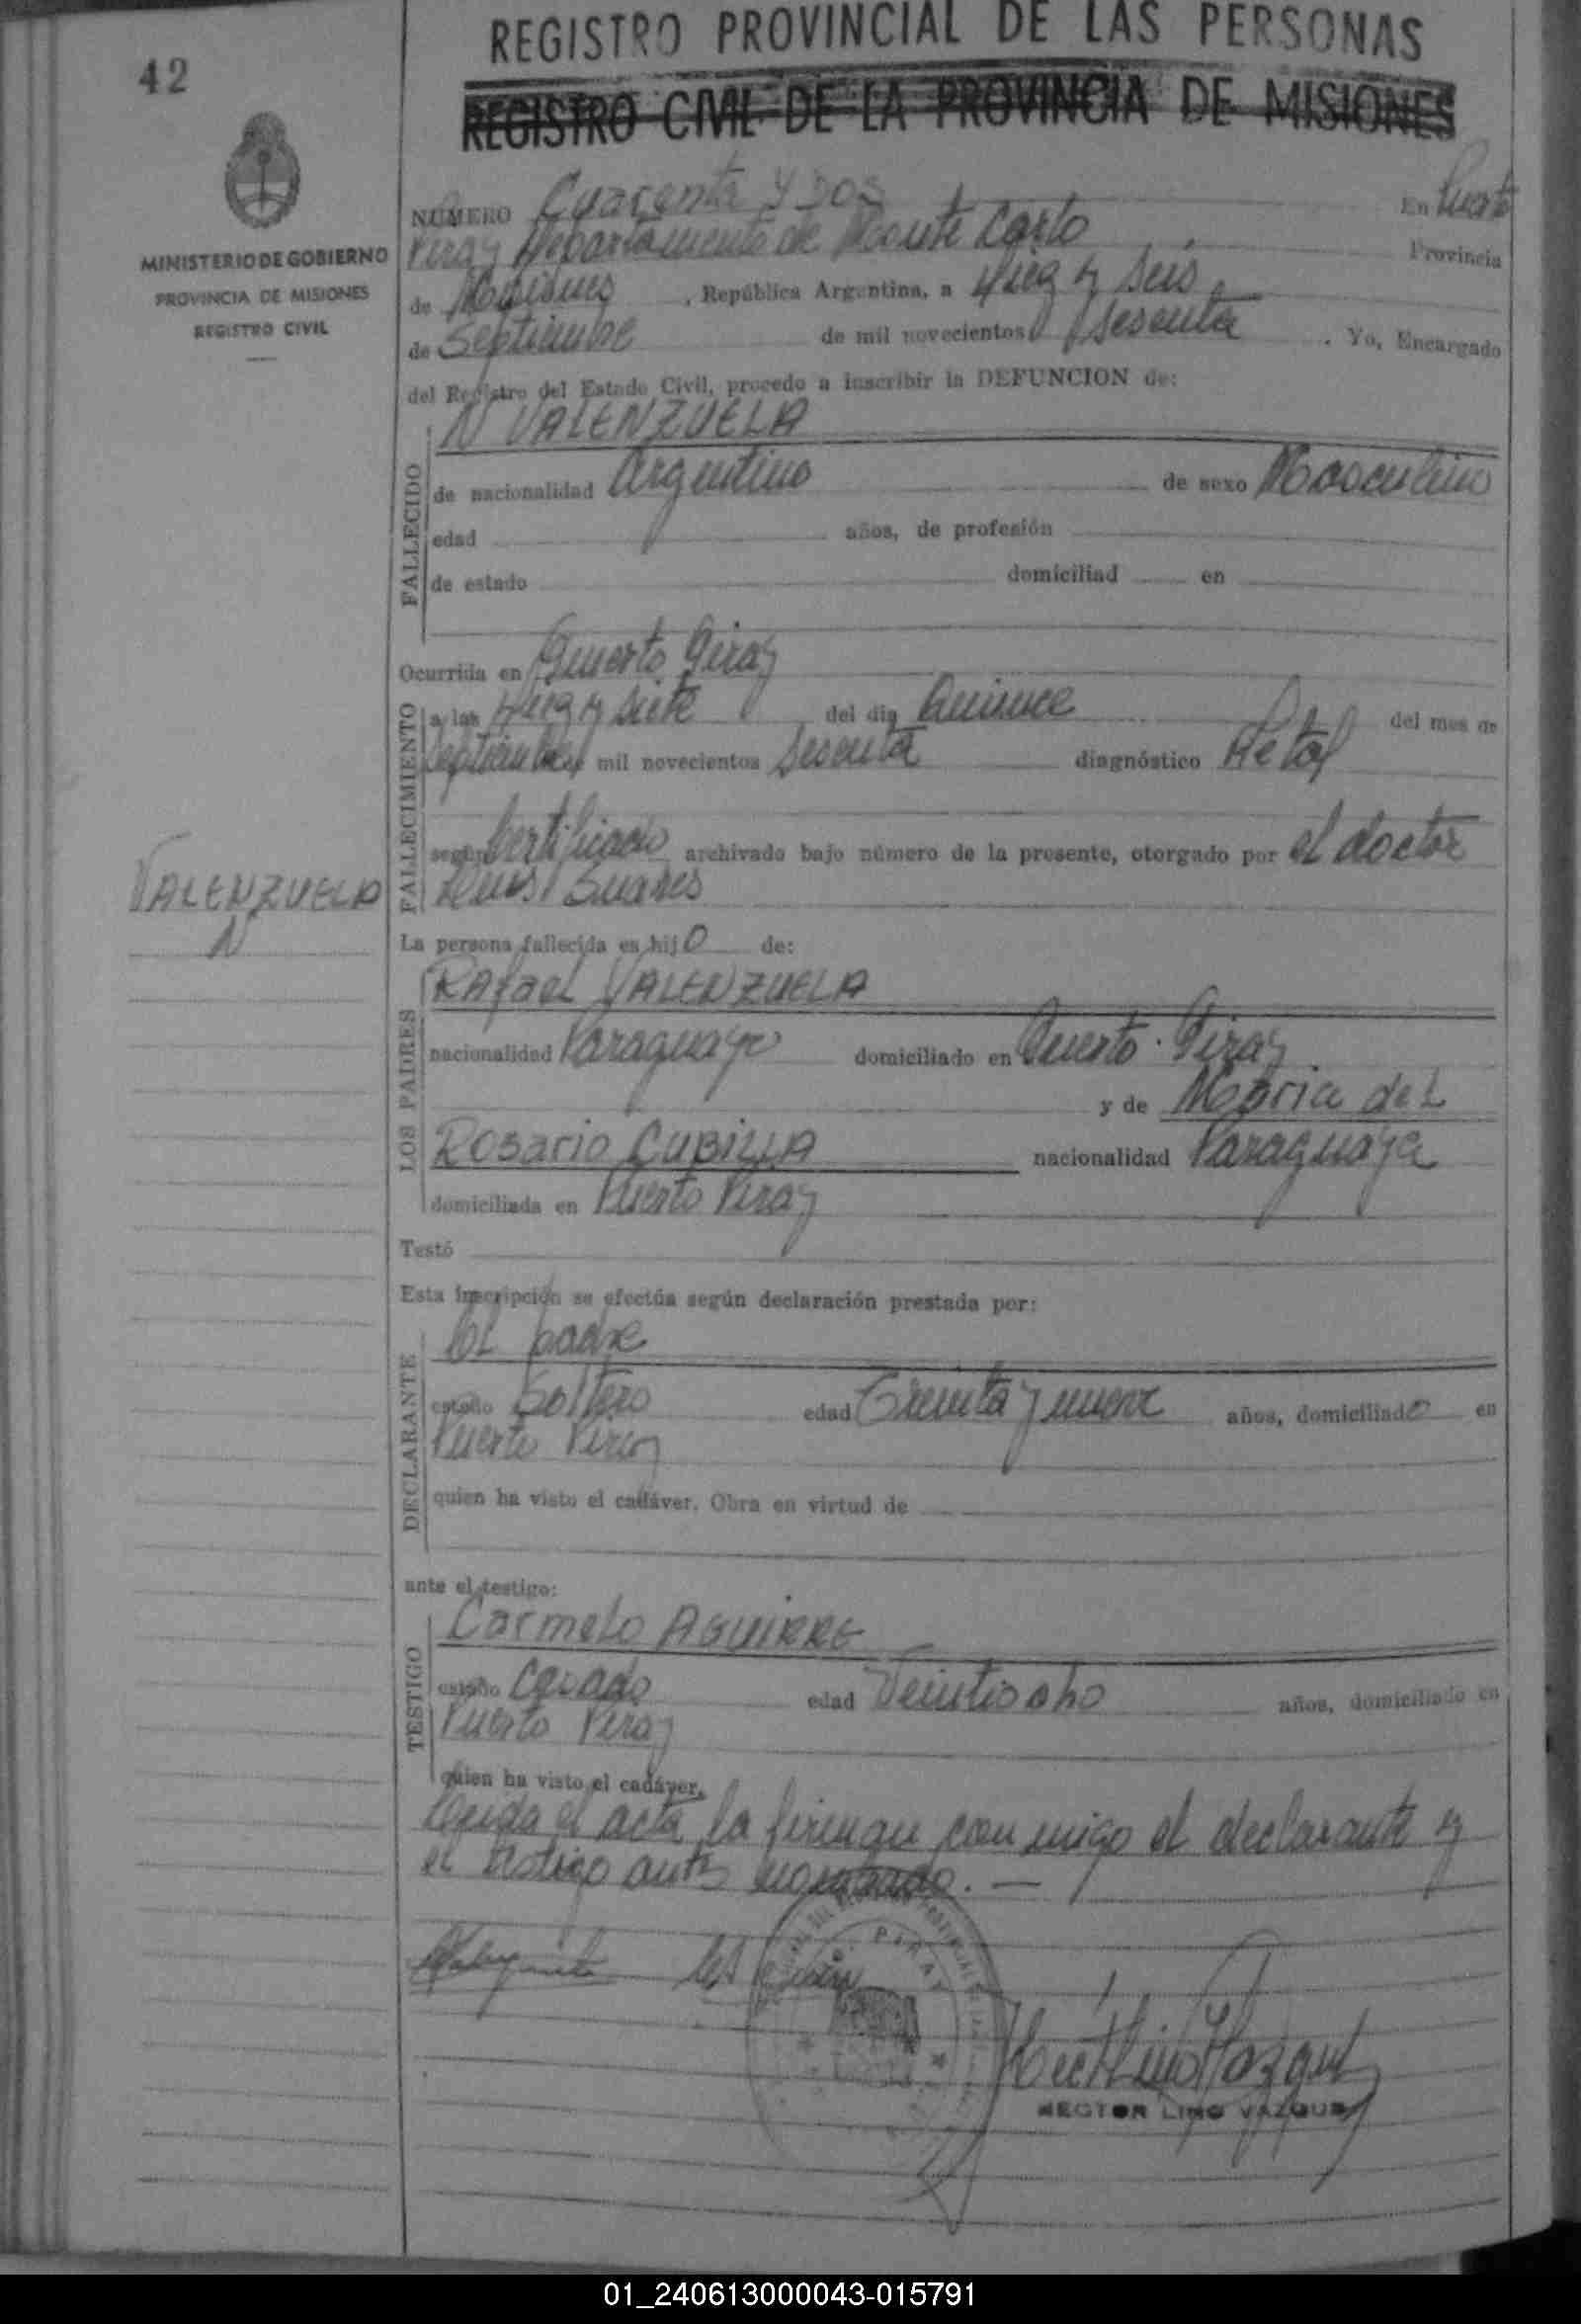 42
MINISTERIO DE GOBIERNO
PROVINCIA DE MISIONES
REGISTRO CIVIL
VALENZUELA
N
REGISTRO PROVINCIAL DE LAS PERSONAS
REGISTRO CIVIL DE LA PROVINCIA DE MISIONES
NÚMERO Cuarenta y Dos En Puerto
Piray Departamento de Monte Carlo Provincia
de Misiones, República Argentina, a diez y seis
de Septiembre de mil novecientos sesenta. Yo, Encargado
del Registro del Estado Civil, procedo a inscribir la DEFUNCION de:
N VALENZUELA
FALLECIDO
de nacionalidad Argentino de sexo Masculino
edad años, de profesión
de estado domiciliad en
Ocurrida en Puerto Piray
FALLECIMIENTO
a las diez y siete del día Quince del mes de
Septiembre mil novecientos sesenta diagnóstico Fetal
según Certificado archivado bajo número de la presente, otorgado por el doctor
Luis Suares
La persona fallecida es hijo de:
LOS PADRES
Rafael VALENZUELA
nacionalidad Paraguayo domiciliado en Puerto Piray
y de Maria del
Rosario CUBILLA nacionalidad Paraguaya
domiciliada en Puerto Piray
Testó
Esta inscripción se efectúa según declaración prestada por:
DECLARANTE
el padre
estado Soltero edad Treinta y nueve años, domiciliado en
Puerto Piray
quien ha visto el cadáver. Obra en virtud de
ante el testigo:
TESTIGO
Carmelo AGUIRRE
estado Casado edad Veintiocho años, domiciliado en
Puerto Piray
quien ha visto el cadáver.
Leida el acta la firman con migo el declarante y
el testigo antes
PIRAY
HECTOR LINO VAZQUEZ
01_240613000043-015791